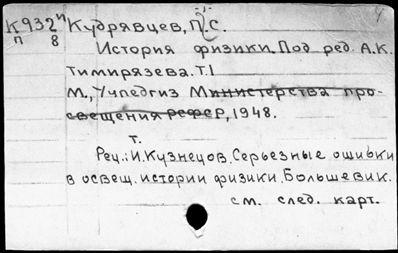 К932 п Кудрявцев, П.С.
п 8
История физики. Под ред. А.К.
Тимирязева. Т.1
М., Учпедгиз Министерства про-
свещения РСФСР, 1948.
Рец.: И. Кузнецов. Серьезные ошибки
т.
в освещ. истории физики. Большевик.
см. след. карт.